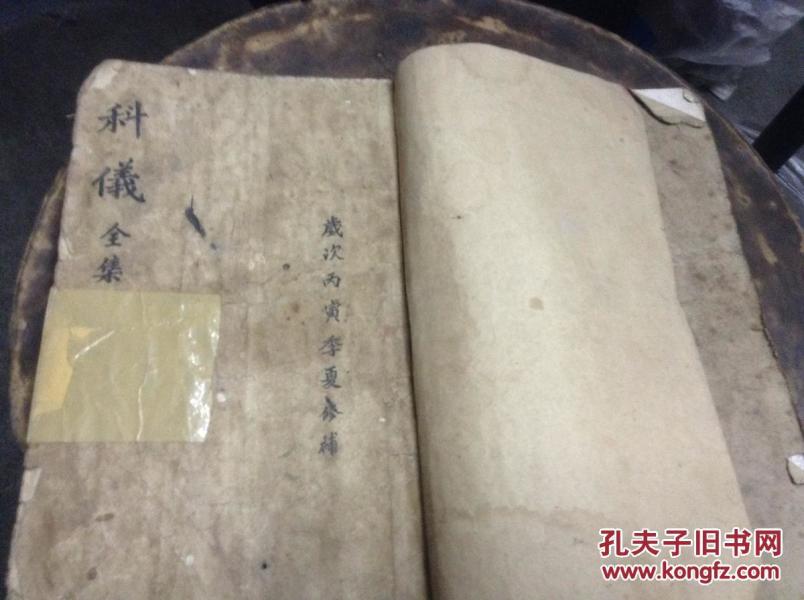 歲次丙寅季夏修補
科儀全集
孔夫子旧书网
www.kongfz.com